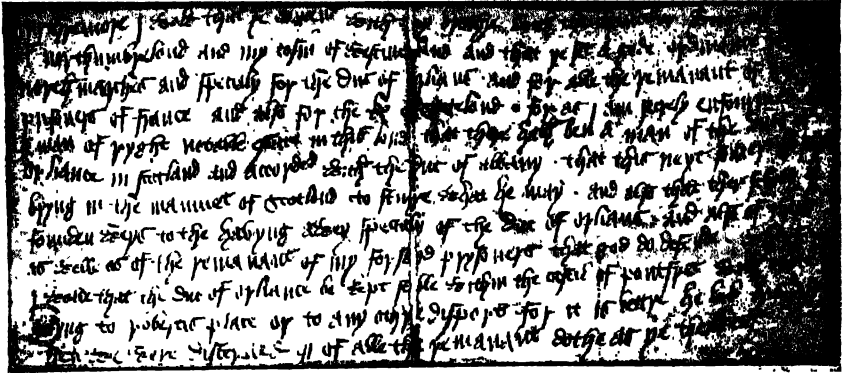 Furthermore I wold that ye comend with my brothre
Northomborlond and my cosin of Westmerland and that ye set a gode ordinance
north marches and specialy for the Duc of Orlians and for alle the remanant of
prisoners of France and also for the K of Scotelond for as I am secrely enfourmed
a man of ryght notable estate in this lond that there hath ben a man of the
Orliance in Scotland and accorded with the Duc of Albany that this next somer
bryng in the mamuet of Scotlond to sturre what he may and also that ther
founden weys to the havyng awey specialy of the Duc of Orlians and also of
as welle as of the remanant of my forsayd prysoners that god do defende
I wolle that the Duc of Orliance be kept stille withyn the castil of Pontfret
goyng to Robertis place or to any othre disport for it is bettre he lak
of alle the remanant dothe as ye thenketh